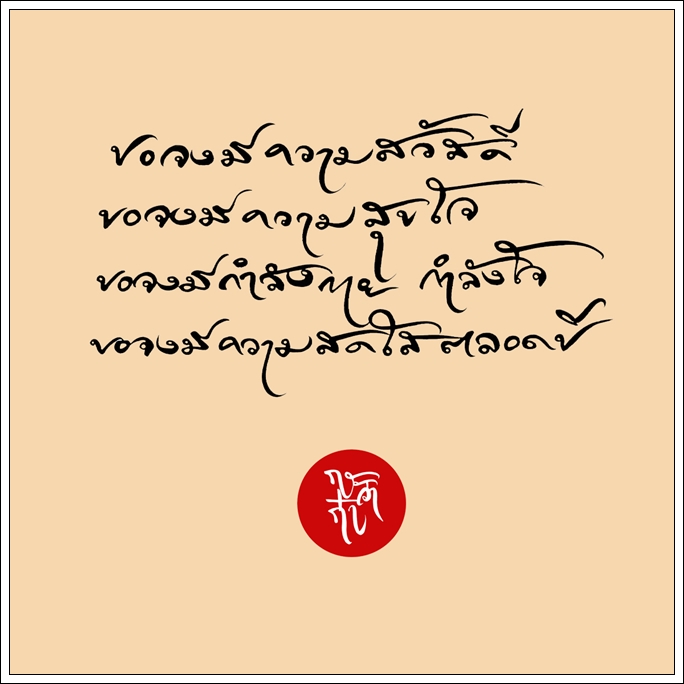 ขอจงมีความสวัสดี
ขอจงมีความสุขใจ
ขอจงมีกำลังกาย กำลังใจ
ขอจงมีความสดใสตลอดปี